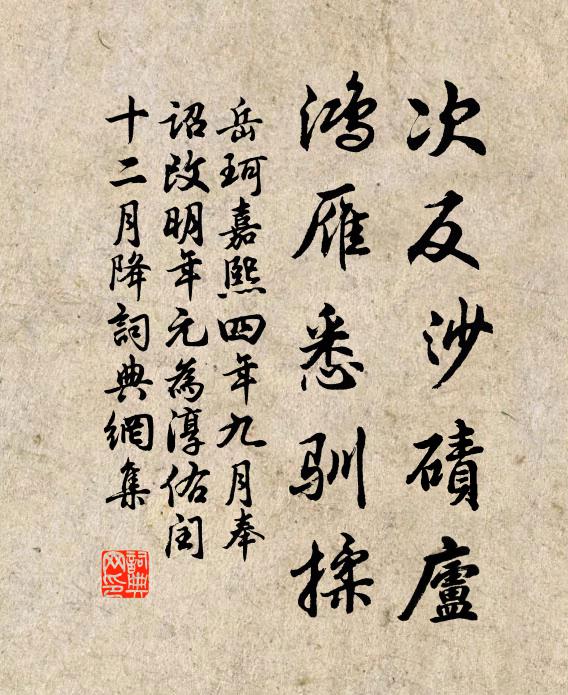 次反沙磧廬
鴻雁悉馴揉
岳珂嘉熙四年九月奉
詔改明年元為淳佑閏
十二月降詞典網集
詞典
网印